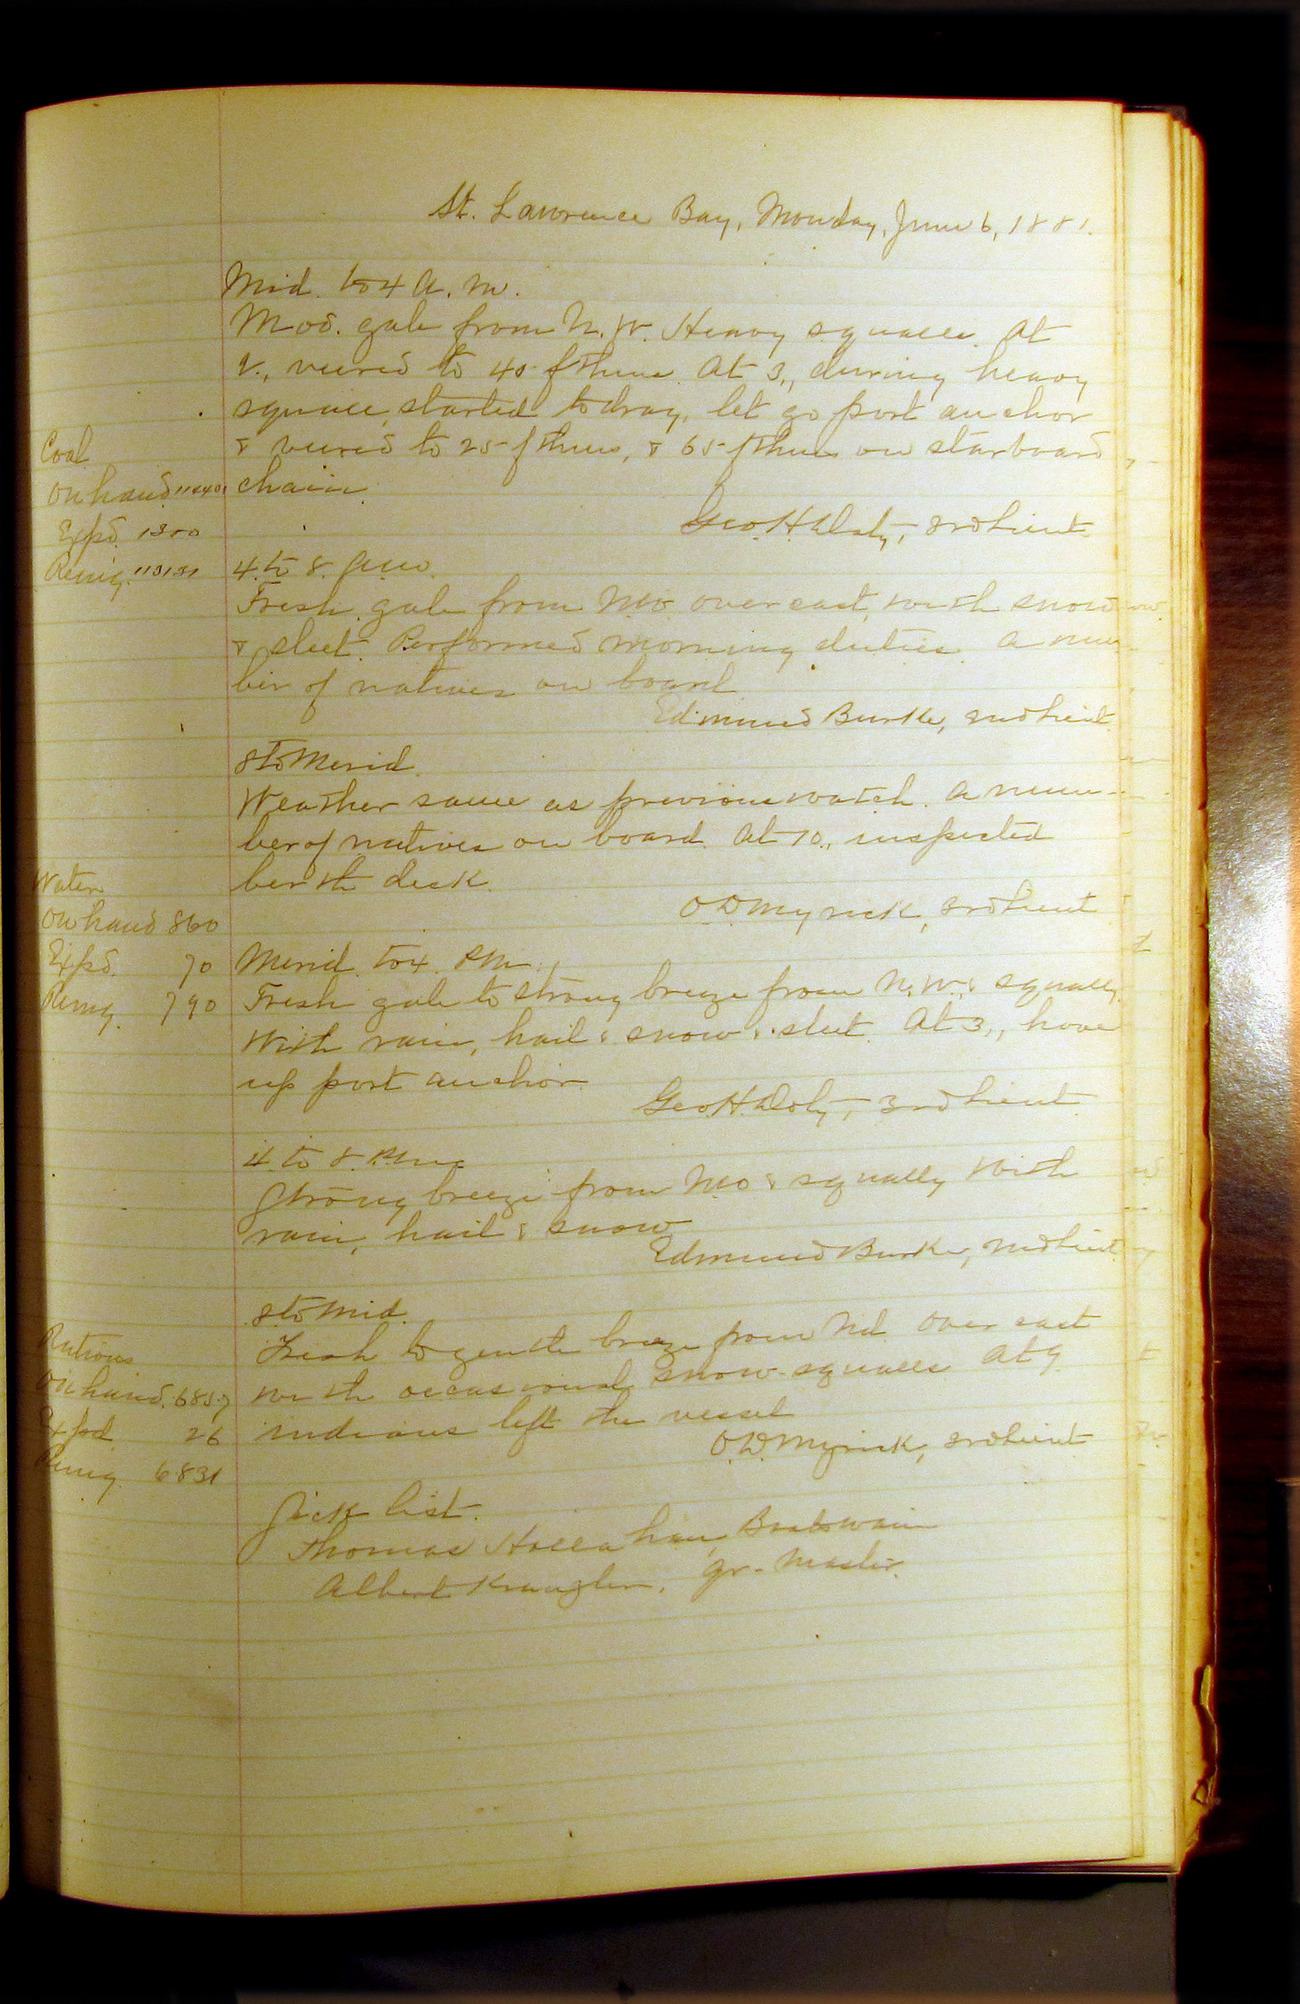 St. Lawrence Bay, Monday, June 6, 1881.
Mid. to 4 A.M.
Mod. gale from N.W. Heavy squalls. At
veered to 45 fthms. At 3., during heavy
squall, started to drag, let go port anchor
Coal
& veered to 25 fthms, & 65 fthms on starboard
On hand
chain.
Expd. 1300
Geo H Doty, 3rd Lieut.
Remg.
4 to 8. A.M.
Fresh gale from Nd overcast, with snow
& sleet. Performed morning duties. A num
ber of natives on board
Edmund Burke, 2nd Lieut.
8 to Merid.
Weather same as previous watch. A num-
ber of natives on board. At 10., inspected
Water
berth deck.
On hand 860
O D Myrick, 3rd Lieut
Expd. 70
Merid. to 4. P.M.
Remg. 790
Fresh gale to strong breeze from N.W. & squally
With rain, hail & snow & sleet. At 3., hove
up port anchor
Geo H. Doty, 3rd Lieut.
4 to 8. P.M.
Strong breeze from Nd & squally with
rain, hail & snow
Edmund Burke, 2nd Lieut
8 to Mid.
Fresh to gentle breeze from Nd. Overcast
Rations
with occasional snow-squalls At 9
On hand. 6857
indians left the vessel
Expd 26
O. D. Myrick, 3rd Lieut
Remg. 6831
Sick list.
Thomas Hollahan, Boatswain
Albert qr-Master.